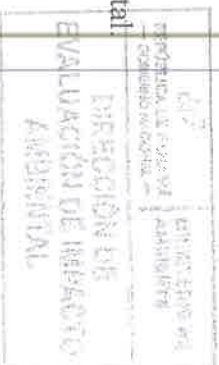 tal.
REPÚBLICA DE PANAMÁ
— GOBIERNO NACIONAL —
MINISTERIO DE
AMBIENTE
DIRECCIÓN DE
EVALUACIÓN DE IMPACTO
AMBIENTAL